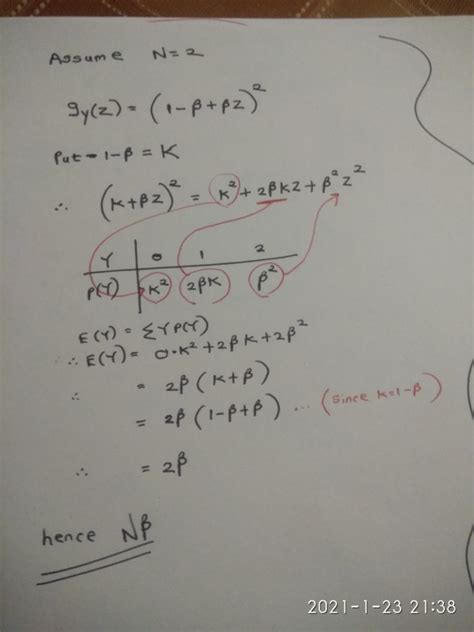 Assume N=2
gy(z) = (1-β+βz)²
Put - 1-β = K
∴ (K+βz)² = K² + 2βKz + β²z²
Y 0 1 2
P(Y) K² 2βK β²
E(Y) = ΣYP(Y)
∴ E(Y) = 0·K² + 2βK + 2β²
∴ = 2β(K+β)
= 2β(1-β+β) ... (Since K=1-β)
∴ = 2β
hence Nβ
2021-1-23 21:38